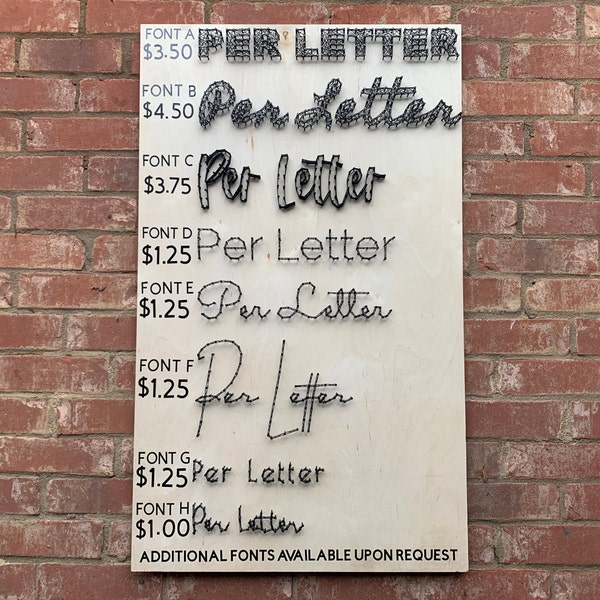 FONT A
$3.50 PER LETTER
FONT B
$4.50 Per Letter
FONT C
$3.75 Per Letter
FONT D
$1.25 Per Letter
FONT E
$1.25 Per Letter
FONT F
$1.25 Per Letter
FONT G
$1.25 Per Letter
FONT H
$1.00 Per Letter
ADDITIONAL FONTS AVAILABLE UPON REQUEST